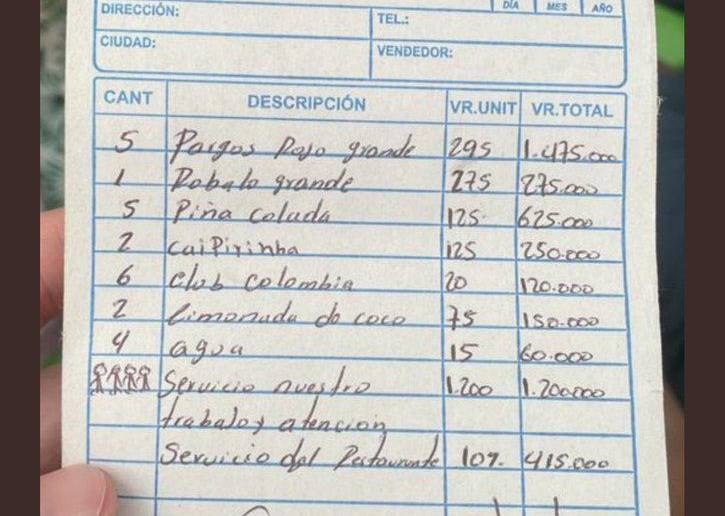 DÍA MES AÑO
DIRECCIÓN: TEL.:
CIUDAD: VENDEDOR:
CANT DESCRIPCIÓN VR.UNIT VR.TOTAL
5 Pargos Rojo grande 295 1.475.000
1 Robalo grande 275 275.000
5 Piña colada 125 625.000
2 caiPirinha 125 250.000
6 club colombia 20 120.000
2 limonada de coco 75 150.000
4 agua 15 60.000
Servicio nuestro 1.200 1.200.000
trabalo y atencion
Servicio del Restaurante 10%. 415.000